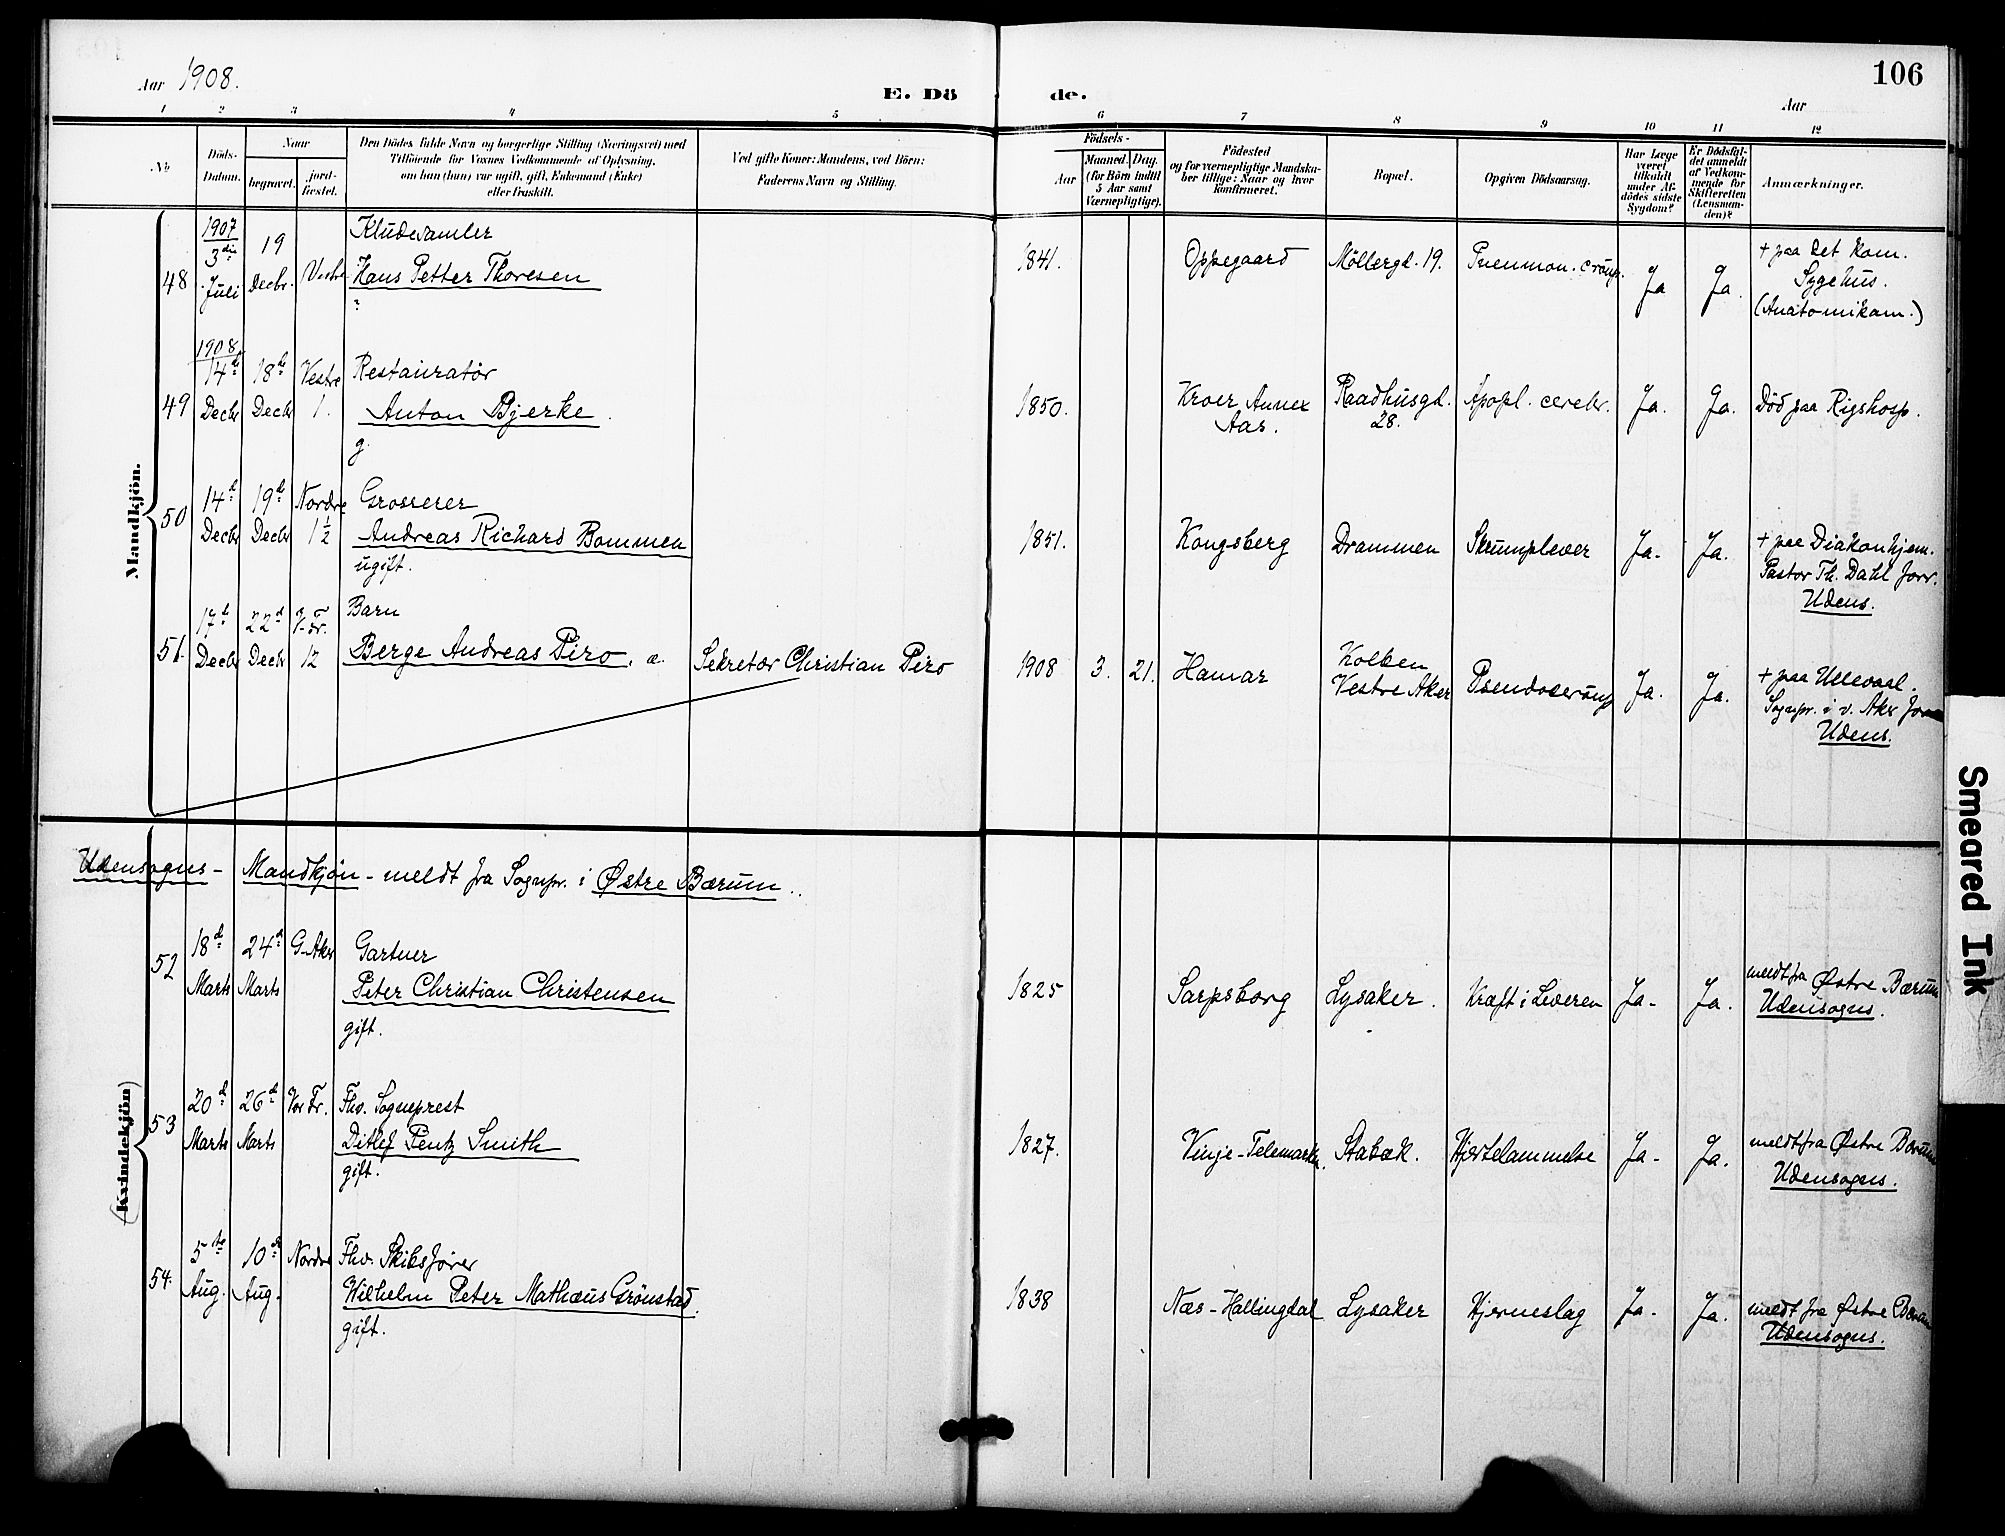 106
Aar 1908.
E. Dö de.
Aar
1 2 3 4 5 6 7 8 9 10 11 12
No
Döds-
Datum.
Naar
begravet.
jord-
fæstet.
Den Dödes fulde Navn og borgerlige Stilling (Næringsvei) med
Tilföiende for Voxnes Vedkommende af Oplysning,
om han (hun) var ugift, gift, Enkemand (Enke)
eller fraskilt.
Ved gifte Koner: Mandens, ved Börn:
Faderens Navn og Stilling.
Födsels-
Aar
Maaned. Dag.
(for Börn indtil
5 Aar samt
Værnepligtige).
Födested
og for værnepligtige Mandska-
ber tillige: Naar og hvor
konfirmeret.
Bopæl.
Opgiven Dödsaarsag.
Har Læge
været
tilkaldt
under Af-
dödes sidste
Sygdom?
Er Dödsfal-
det anmeldt
af Vedkom-
mende for
Skifteretten
(Lensman-
den)?
Anmærkninger.
Mandkjön.
48
1907
3die
Juli
19
Decbr.
Vestre
Kludesamler
Hans Petter Thoresen
?
1841.
Oppegaard
Möllergd. 19.
Pnenmon. croup.
Ja
Ja.
+ paa det kom.
Sygehus.
(Anatomikam.)
49
1908
14de
Decbr
18de
Decbr
Vestre
1.
Restauratör
Anton Bjerke.
g.
1850.
Kroer Annex
Aas.
Raadhusgd.
28.
Apopl. cerebr.
Ja.
Ja.
Död paa Rigshosp.
50
14d
Decbr
19d
Decbr
Nordre
1 1/2
Grosserer
Andreas Richard Bommen
ugift.
1851.
Kongsberg
Drammen
Skrumplever
Ja.
Ja.
+ paa Diakonhjem.
Pastor Th. Dahl forr.
Udens.
51
17d
Decbr
22d
Decbr
V. Fr.
12
Barn
Berge Andreas Piro. æ.
Sekretær Christian Piro
1908 3. 21.
Hamar
Kolben
Vestre Aker
Pseudocroup
Ja.
Ja.
+ paa Ullevaal.
Sognpr. i v. Aker
Udens.
Udensogns - Mandkjön - meldt fra Sognpr. i Østre Bærum.
(Kvindekjön)
52
18d
Marts
24d
Marts
G. Aker
Gartner
Peter Christian Christensen
gift.
1825
Sarpsborg
Lysaker.
Kræft i Leveren
Ja.
Ja.
meldt fra Østre Bærum
Udensogns.
53
20d
Marts
26d
Marts
Vor Fr.
Fhv. Sogneprest
Ditlef Pentz Smith
gift.
1827.
Vinje - Telemarken.
Stabæk.
Hjertelammelse
Ja.
Ja.
meldt fra Østre Bærum
Udensogns.
54.
5te
Aug.
10de
Aug.
Nordre
Fhv. Skibsfører
Wilhelm Peter Mathæus Grönstad.
gift.
1838
Næs - Hallingdal
Lysaker
Hjerneslag
Ja.
Ja.
meldt fra Østre Bærum
Udensogns.
Smeared Ink